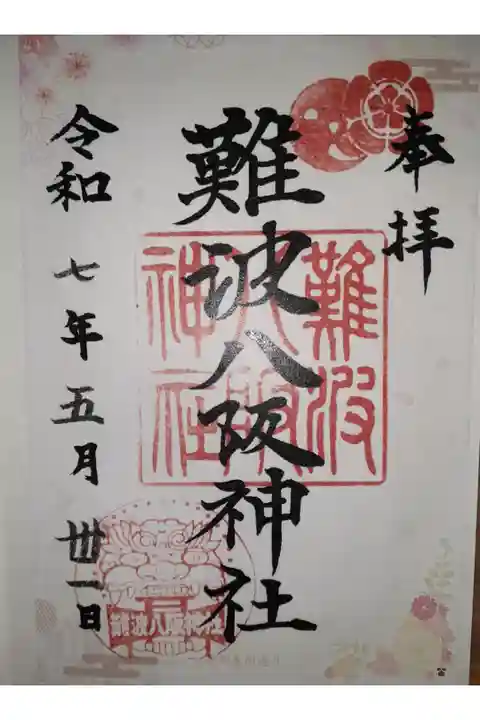 奉拝
難波八阪神社
令和七年五月卅一日
難波
八阪
神社
難波八阪神社